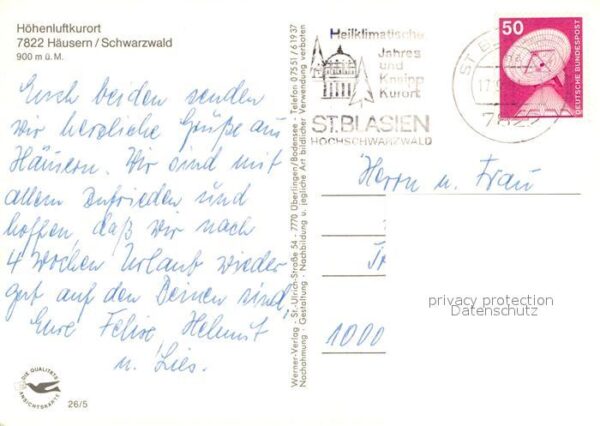 Höhenluftkurort
7822 Häusern / Schwarzwald
900 m ü. M.
Euch beiden senden
wir herzliche Grüße aus
Häusern. Wir sind mit
allem zufrieden und
hoffen, daß wir nach
4 Wochen Urlaub wieder
gut auf den Beinen sind,
Eure Felize, Helmut
u. Lies.
DIE QUALITÄTS
ANSICHTSKARTE
26/5
Werner-Verlag · St.-Ulrich-Straße 54 · 7770 Überlingen/Bodensee · Telefon 07551/61937
Nachahmung · Gestaltung · Nachdruck u. jegliche Art bildlicher Verwendung verboten
Heilklimatischer
Jahres
und
Kneipp
Kurort
ST. BLASIEN
HOCHSCHWARZWALD
ST. B
17.
7822
50
DEUTSCHE BUNDESPOST
Herrn u. Frau
1000
privacy protection
Datenschutz